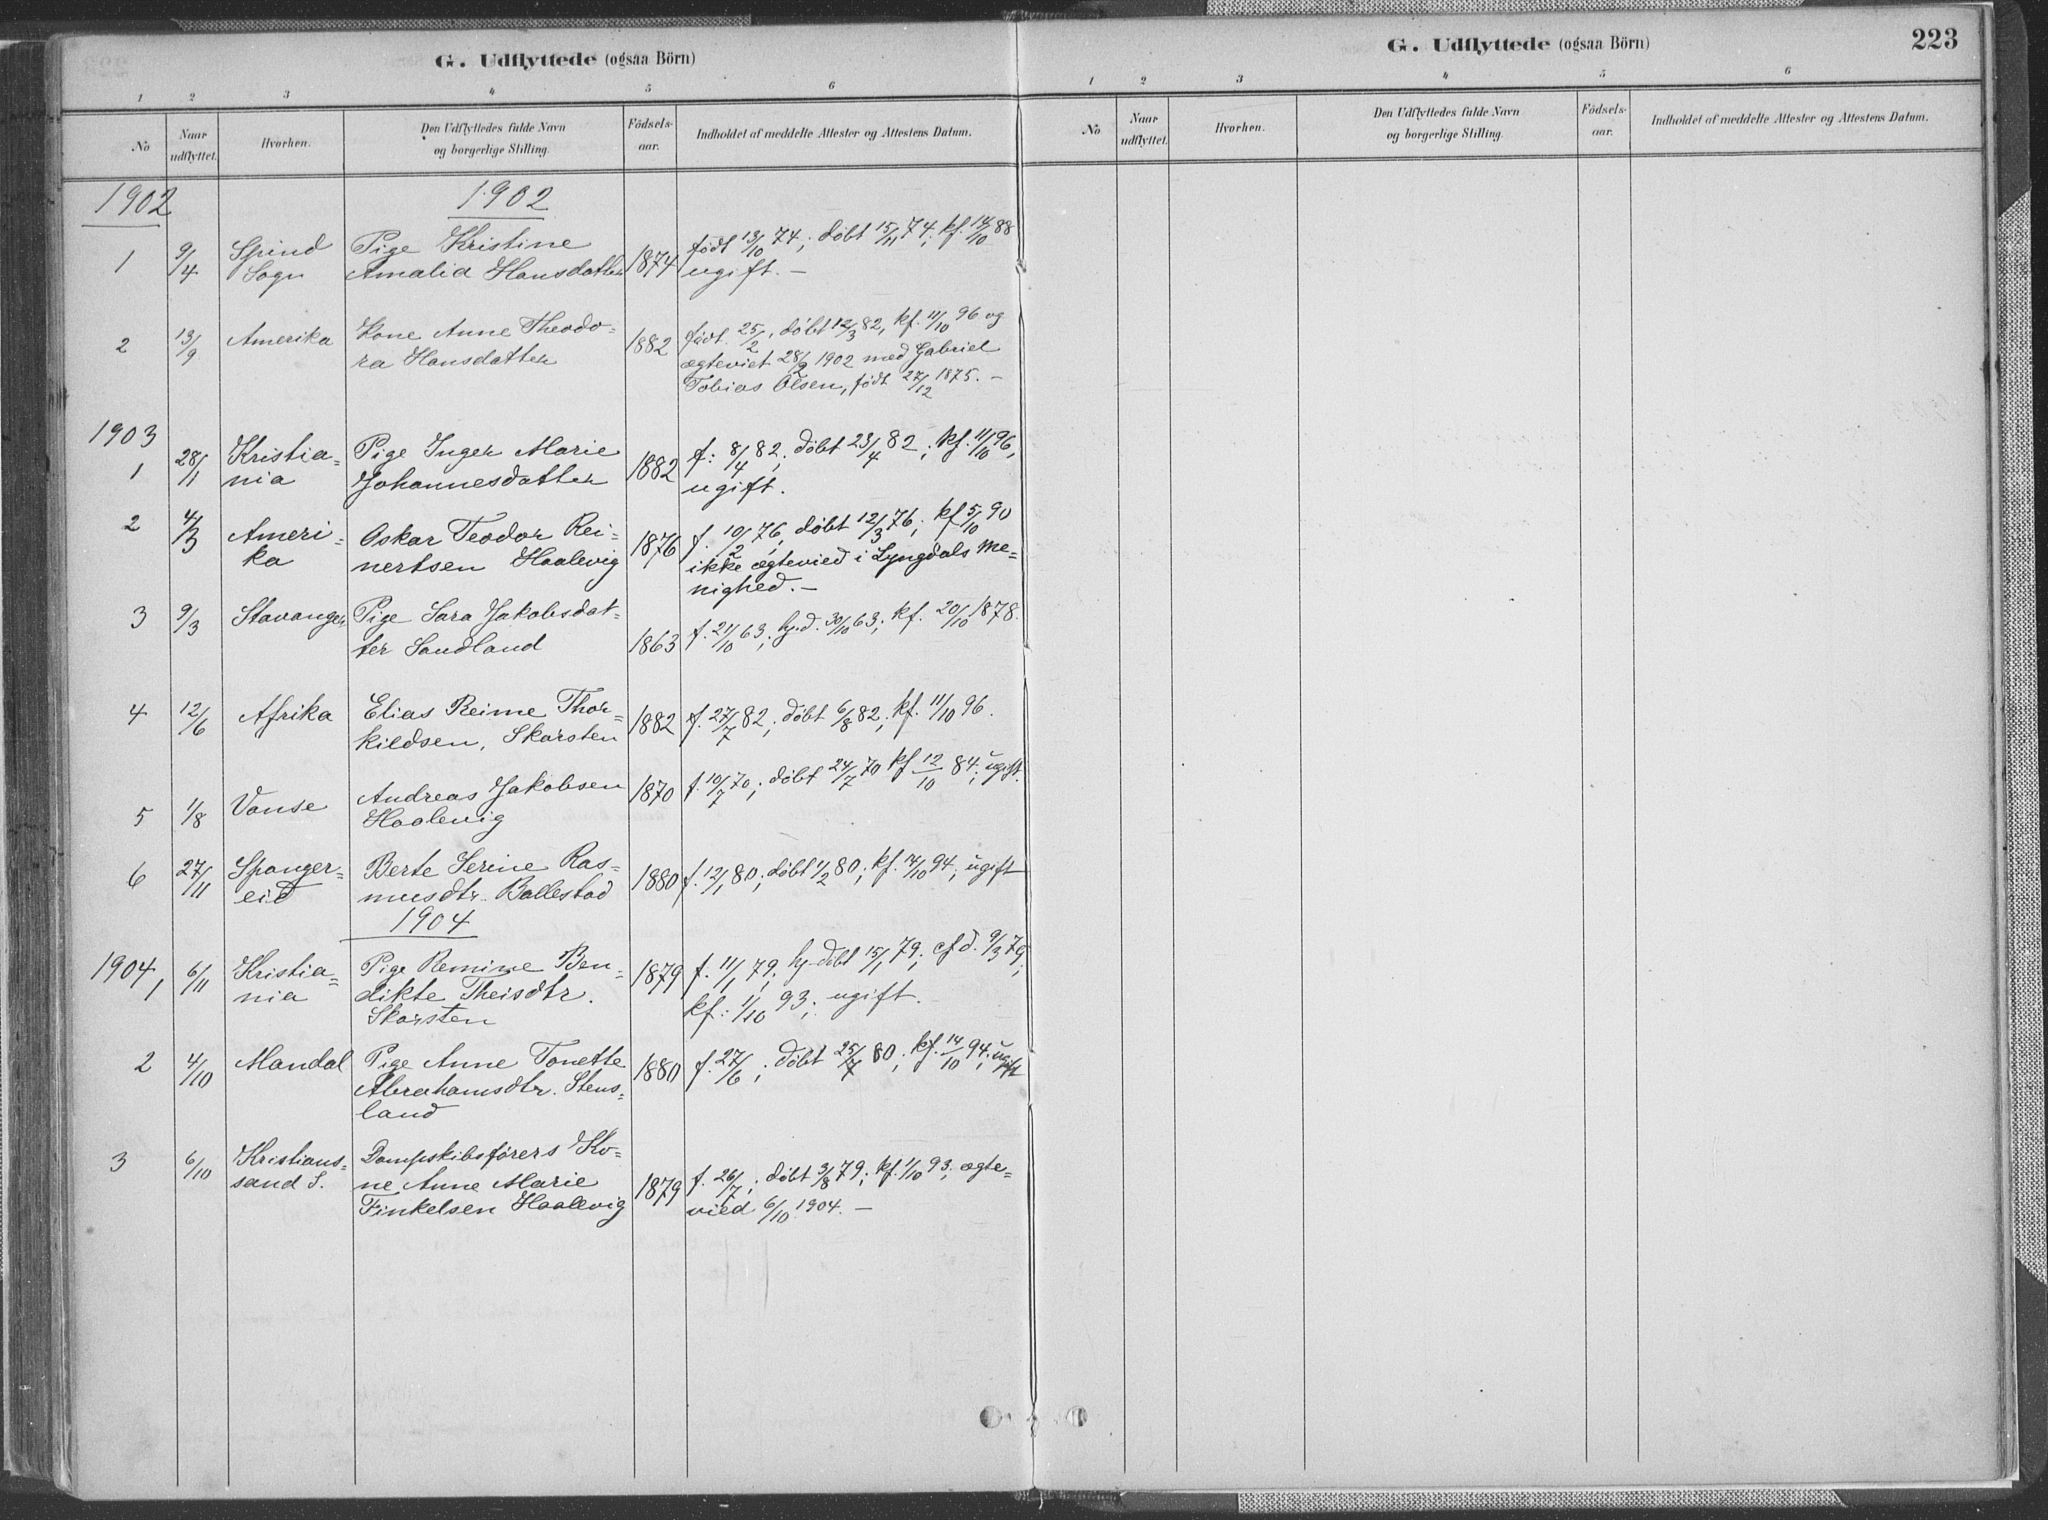 G. Udflyttede (ogsaa Börn)
1 2 3 4 5 6
No
Naar udflyttet.
Hvorhen.
Den Udflyttedes fulde Navn og borgerlige Stilling.
Födsels-aar.
Indholdet af meddelte Attester og Attestens Datum.
1902
1902
1 9/4 Spind Pige Kristine 1874 født 13/10 74; døbt 15/11 74; kf. 14/10 88
Sogn Amalia Hansdatter ugift. –
2 13/9 Amerika Kone Anne Theodo- 1882 født 25/2, døbt 12/3 82, kf. 11/10 96 og
ra Hansdatter ægteviet 28/2 1902 med Gabriel
Tobias Olsen, født 27/12 1875. –
1903
1 28/1 Kristia- Pige Inger Marie 1882 f: 8/4 82; døbt 23/4 82; kf. 11/10 96,
nia Johannesdatter ugift.
2 4/3 Ameri- Oskar Teodor Rei- 1876 f. 10/2 76, døbt 12/3 76; kf 5/10 90
ka nertsen Haalevig ikke ægtevied i Lyngdals Me-
nighed. –
3 9/3 Stavanger Pige Sara Jakobsdat- 1863 f. 21/10 63; hj.d. 30/10 63; kf. 20/10 1878.
ter Sandland
4 12/6 Afrika Elias Reime Thor- 1882 f. 27/7 82; døbt 6/8 82; kf. 11/10 96.
kildsen, Skarsten
5 1/8 Vanse Andreas Jakobsen 1870 f. 10/7 70; døbt 24/7 70 kf 12/10 84; ugift.
Haalevig
6 27/11 Spanger- Berte Serine Ras- 1880 f. 12/1 80; døbt 1/2 80; kf. 14/10 94; ugift
eid musdtr. Ballestad
1904
1904, 1 6/11 Kristia- Pige Remine Ben- 1879 f. 11/1 79; hj-døbt 15/1 79; cf d. 9/3 79;
nia dikte Theisdtr. kf: 1/10 93; ugift.
Skarsten
2 4/10 Mandal Pige Anne Tonette 1880 f. 27/6; døbt 25/7 80; kf. 14/10 94; ugift
Abrahamsdtr. Stens-
land
3 6/10 Kristians- Dampskibsførers Ko- 1879 f. 26/7; døbt 3/8 79; kf. 1/10 93; ægte-
sand S. ne Anne Marie vied 6/10 1904. –
Finkelsen Haalevig
G. Udflyttede (ogsaa Börn)
223
1 2 3 4 5 6
No
Naar udflyttet.
Hvorhen.
Den Udflyttedes fulde Navn og borgerlige Stilling.
Födsels-aar.
Indholdet af meddelte Attester og Attestens Datum.